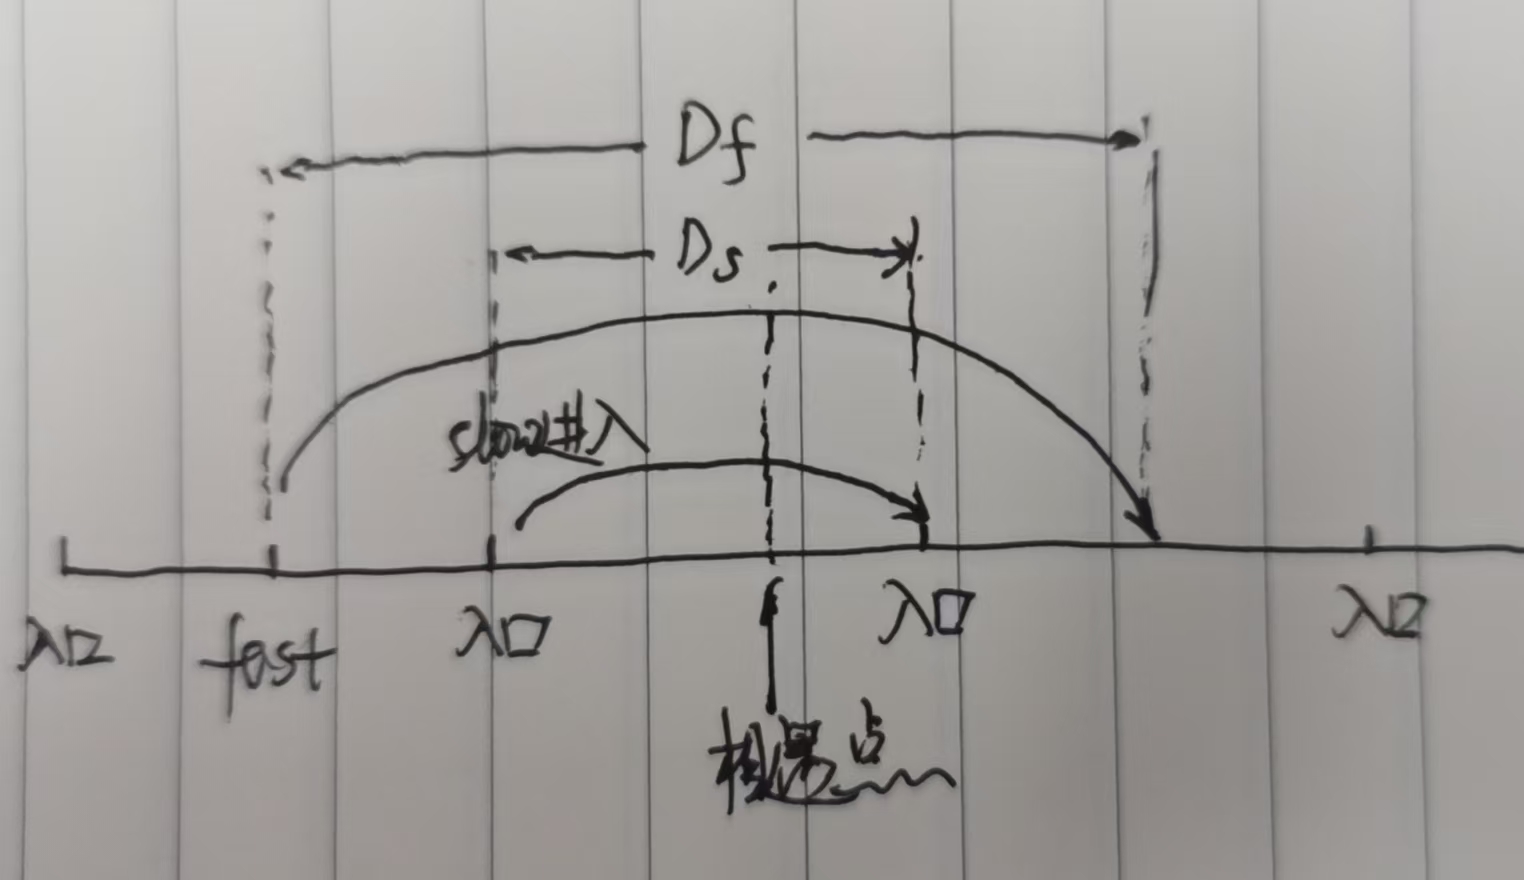 Df
Ds
slow 进入
入口 fast 入口 入口 入口
相遇点